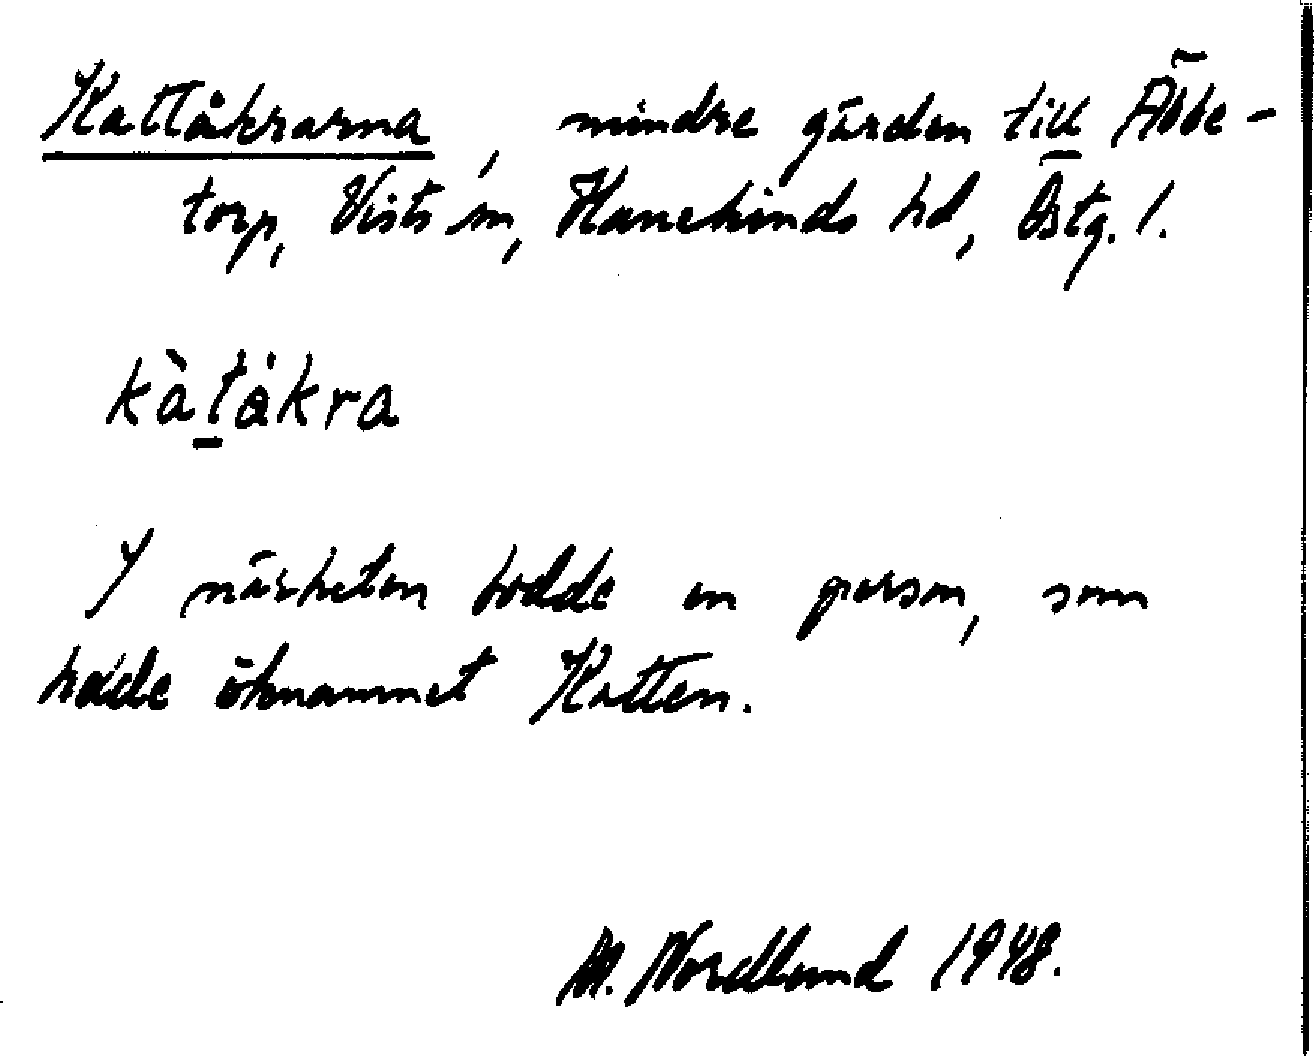 Kattåkrarna, mindre gärden till Äbbe-
torp, Vists sn, Hanekinds hd, Östg. l.
kàt̠åkra
I närheten bodde en person, som
hade öknamnet Katten.
M. Nordlund 1948.